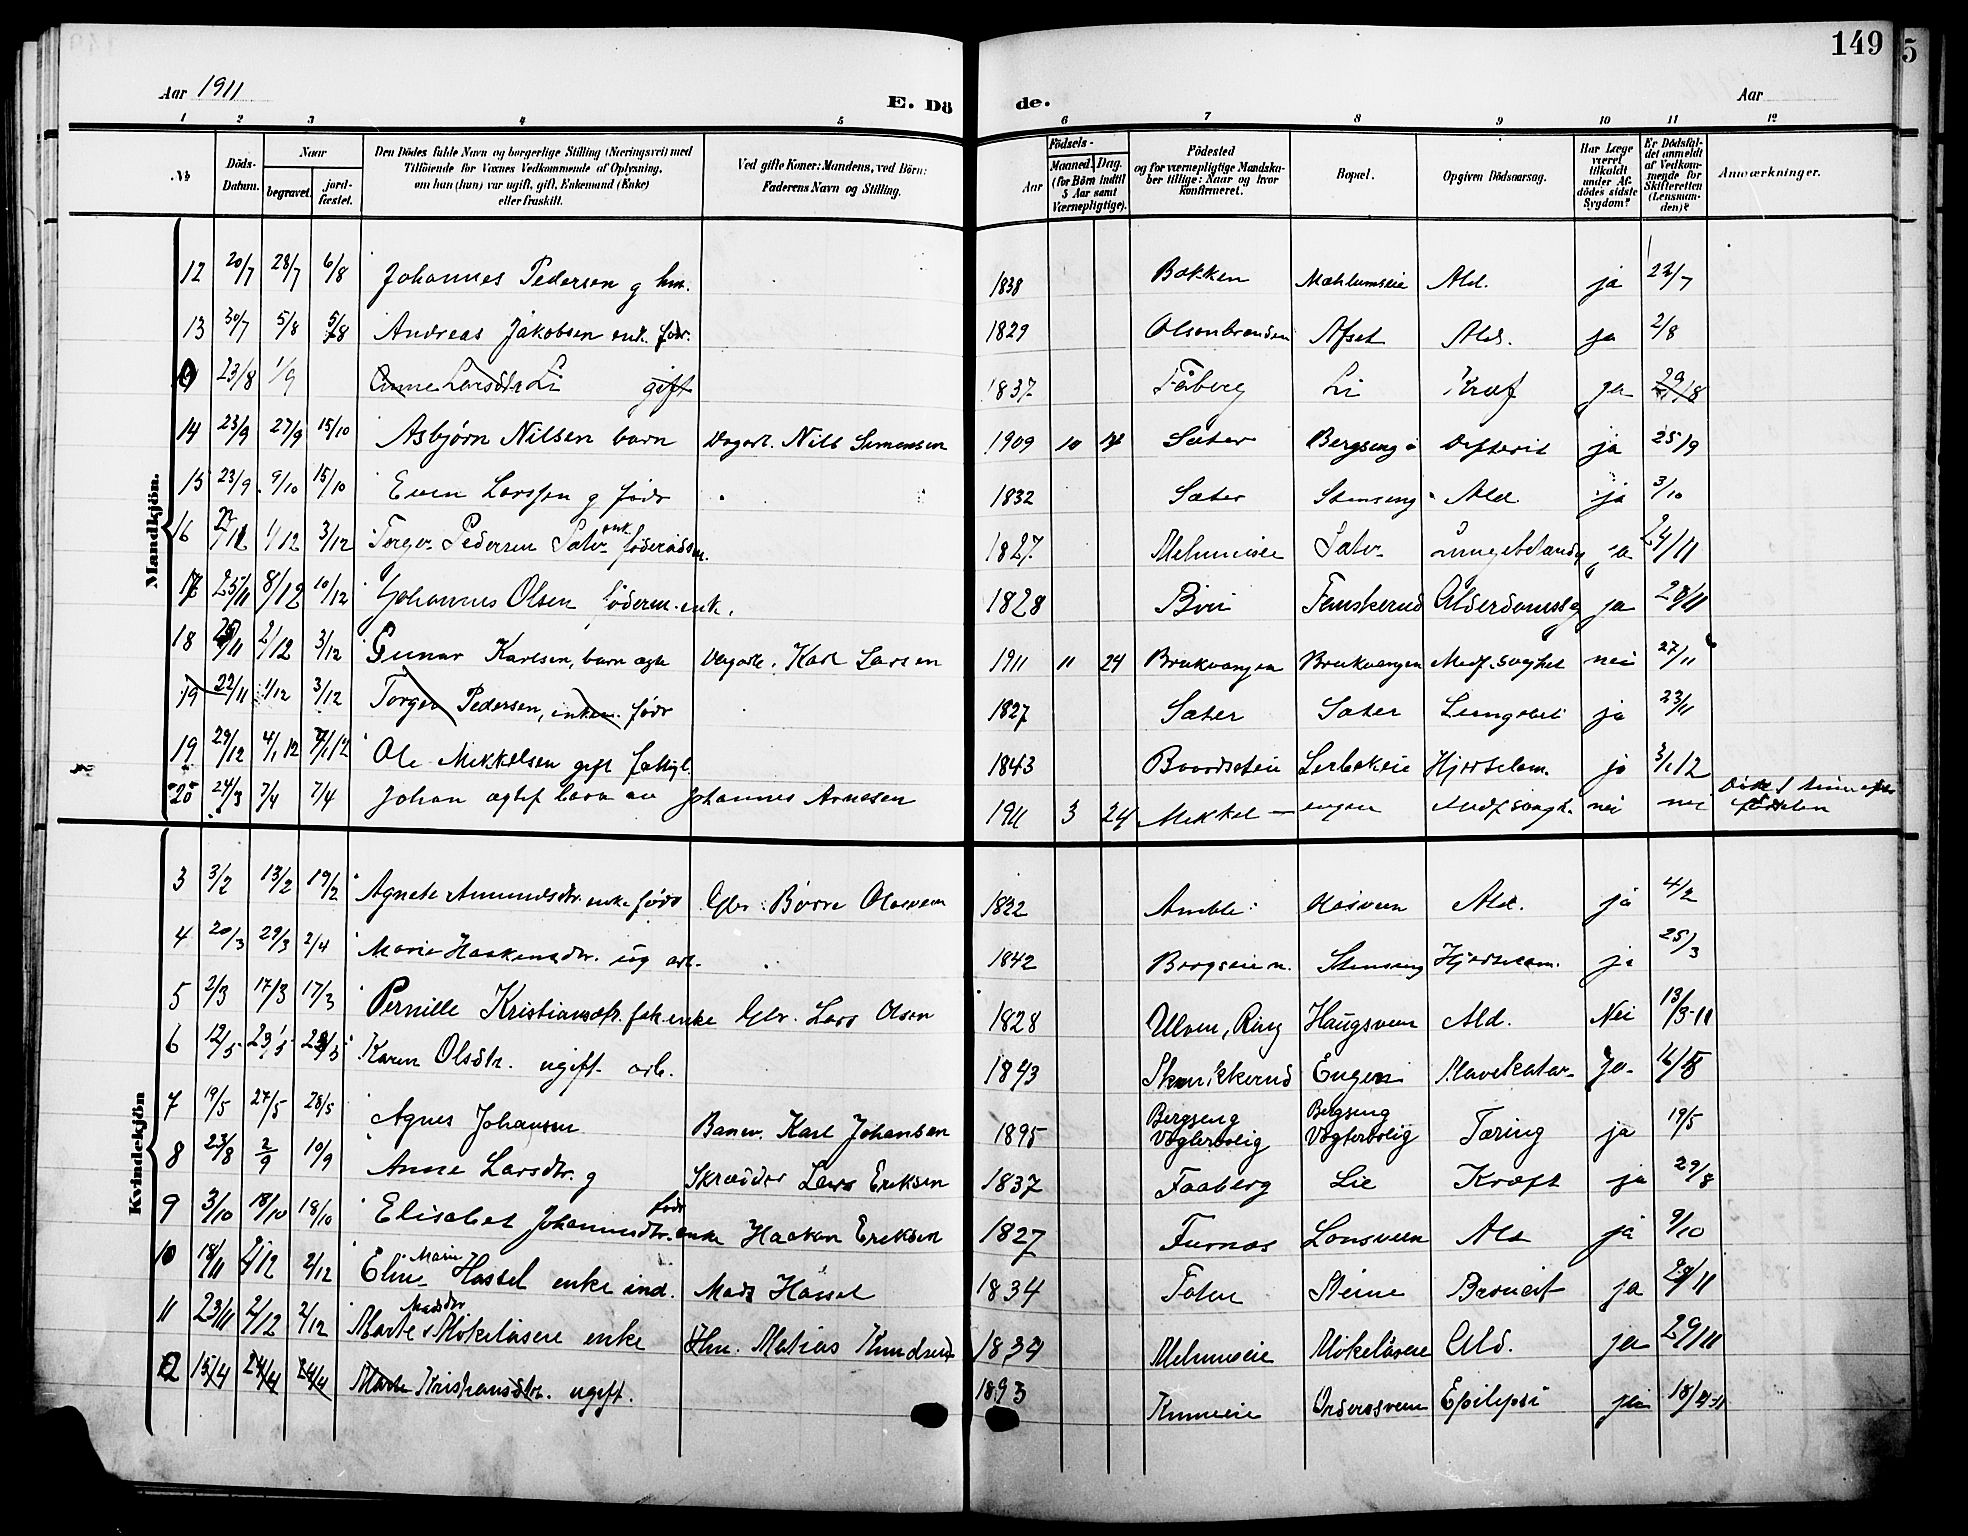 149
5
Aar 1911
E. Dö
de.
Aar
1 2 3 4 5 6 7 8 9 10 11 12
№
Döds-Datum.
Naar
begravet.
jord-fæstet.
Den Dödes fulde Navn og borgerlige Stilling (Næringsvei) med
Tilföiende for Voxnes Vedkommende af Oplysning,
om han (hun) var ugift, gift, Enkemand (Enke)
eller fraskilt.
Ved gifte Koner: Mandens, ved Börn:
Faderens Navn og Stilling.
Födsels-
Aar
Maaned. Dag.
(for Börn indtil 5 Aar samt Værnepligtige).
Födested
og for værnepligtige Mandska-
ber tillige: Naar og hvor
konfirmeret.
Bopæl.
Opgiven Dödsaarsag.
Har Læge været tilkaldt under Af-dödes sidste Sygdom?
Er Dödsfal-det anmeldt af Vedkom-mende for Skifteretten (Lensman-den)?
Anmærkninger.
Mandkjön.
12 20/7 28/7 6/8 Johannes Pedersen g hm. 1838 Bakken Mæhlumseie Ald. ja 22/7
13 30/7 5/8 5/8 Andreas Jakobsen enk. födr. 1829 Olsenbranden Afset Ald. ja 2/8
23/8 1/9 Anne Larsdtr Li gift 1837 Fåberg Li Kræf ja 29/8
14 23/9 27/9 15/10 Asbjørn Nilsen barn Dagarb. Nils Simensen 1909 10 Sæter Bergseng Difterit ja 25/9
15 23/9 9/10 15/10 Even Larssen g födr 1832 Sæter Stenseng Ald ja 3/10
16 22/11 1/12 3/12 Torger Pedersen Sæter enk. föderådsm. 1827 Melumseie Sæter Lungebetændr ja 24/11
17 25/11 8/12 10/12 Johannes Olsen föderm. enk. 1828 Biri Femskerud Alderdomssvag ja 28/11
18 2/12 3/12 Gunar Karlsen, barn ægte Dagarb. Karl Larsen 1911 11 24 Brukvangen Brukvangen Medf. svaghet nei 27/11
19 22/11 1/12 3/12 Torger Pedersen, enkem. födr 1827 Sæter Sæter Lungebet ja 23/11
19 29/12 4/1 12 7/1 12 Ole Mikkelsen gift fattigl. 1843 Baardseteie Lerbakeie Hjertelam. ja 3/1 12
20 24/3 7/4 7/4 Johan ægtef barn av Johannes Arnesen 1911 3 24 Mikkel — engen Medf svagh. nei nei
Kvindekjön
3 3/2 13/2 19/2 Agnete Amundsdtr. enke födr Gbr. Børre Olasveen 1822 Amble Olasveen Ald. ja 4/2
4 20/3 29/3 2/4 Marie Haakensdtr. ug arb. 1842 Bergseie n. Stenseng Hjertelam. ja 25/3
5 2/3 17/3 17/3 Pernille Kristiansdtr. fat. enke Gbr. Lars Olsen 1828 Ulven, Ring Haugsveen Ald. Nei 13/3-11
6 12/5 23/5 28/5 Karen Olsdtr. ugift arb. 1843 Skrikkerud Engen Mavekatar. Ja. 16/5
7 19/5 27/5 28/5 Agnes Johansen Banev. Karl Johansen 1895 Bergseng Vogterbolig Bergseng Vogterbolig Tæring ja 19/5
8 23/8 2/9 10/9 Anne Larsdtr. g Skrædder Lars Eriksen 1837 Faaberg Lie Kræft ja 29/8
9 3/10 18/10 18/10 Elisabet Johannesdtr. födr enke Haakon Eriksen 1827 Furnes Lonsveen Ald ja 9/10
10 18/11 2/12 2/12 Eline Marie Hassel enke ind. Mads Hassel 1834 Toten Steine Bronkit ja 28/11
11 23/11 2/12 2/12 Marte Madsdtr Mökelåseie enke Hm. Matias Knudsen 1834 Melumseie Mökelåseie Ald. ja 29/11
12 15/4 24/4 24/4 Marte Kristiansdtr. ugift. 1893 Epilepsi ja 18/4-11